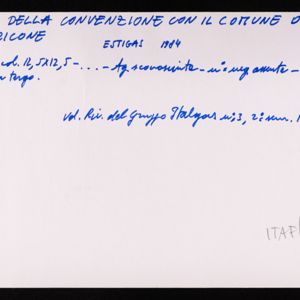 DELLA CONVENZIONE CON IL COMUNE D
RICONE
ESTIGAS 1984
col. 12,5x12,5 - ... - Ag. sconosciuta - n° neg. assente -
tergo.
vd. Riv. del Gruppo Italgas n° 3, 2° sem. 1
ITAF/